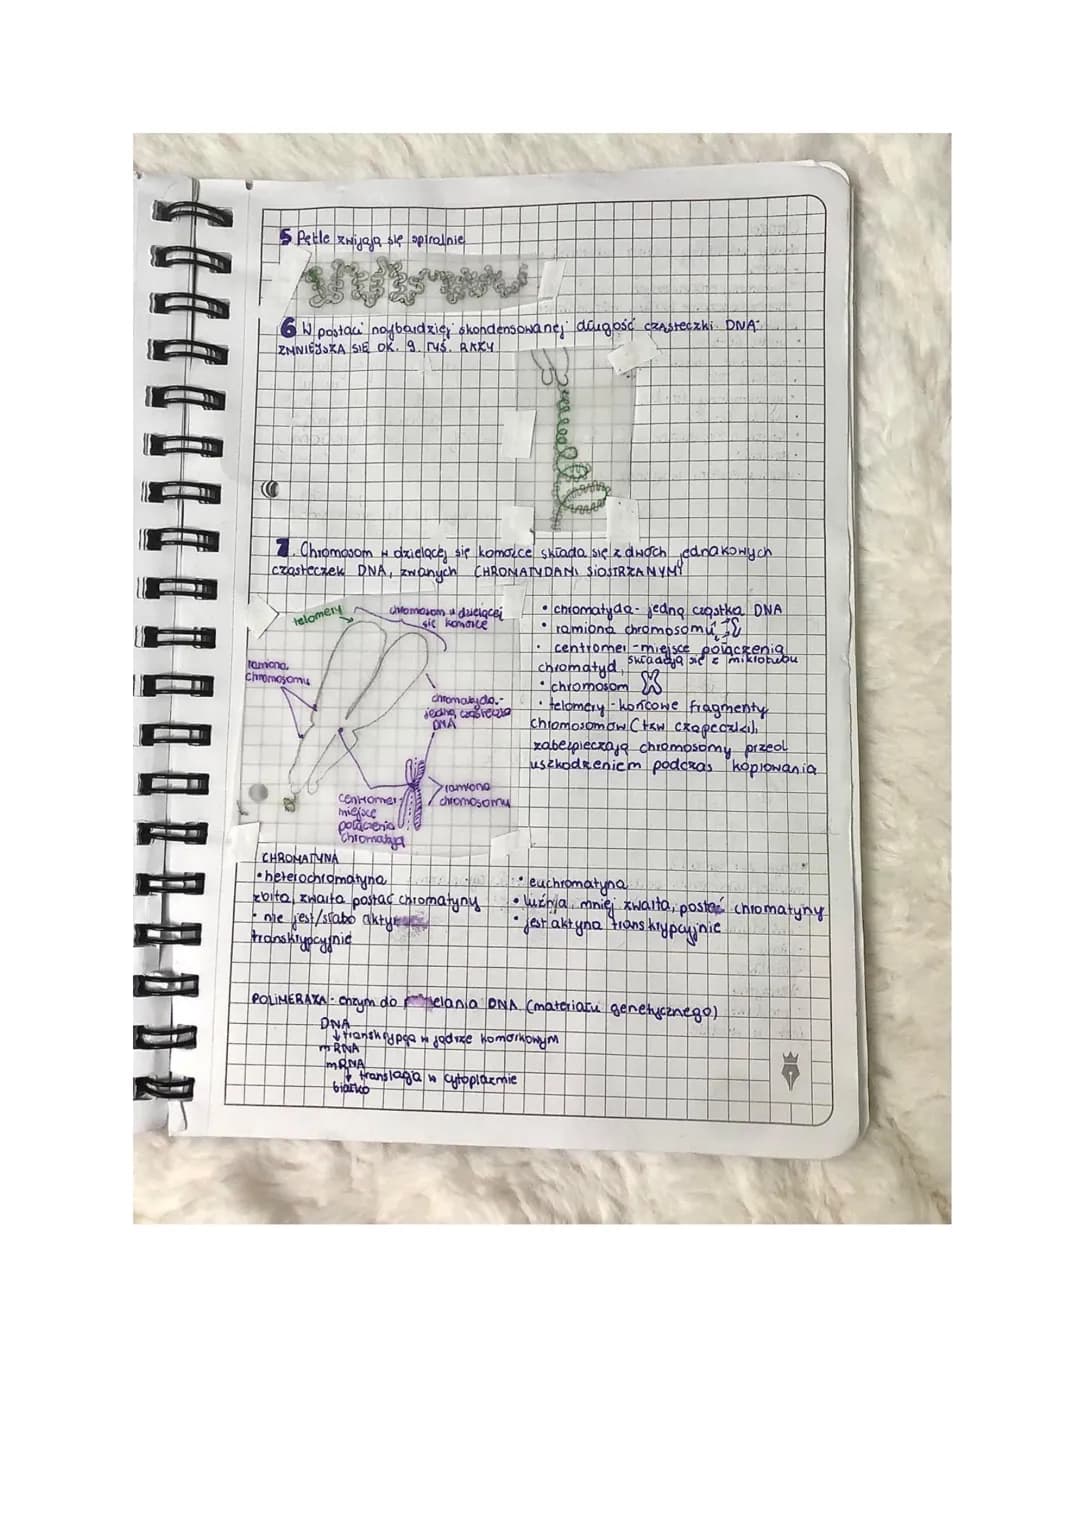 5 Pętle zwijają się spiralnie
6 W postaci najbardziej skondensowanej długość cząsteczki DNA
ZMNIEJSZA SIĘ OK. 9. TYŚ. RAZY
7. Chromosom w dzielącej się komórce składa się z dwóch jednakowych
cząsteczek DNA, zwanych CHROMATYDAMI SIOSTRZANYMI
telomery
chromosom w dzielącej
się komórce
ramiona
chromosomu
chromatyda -
jedna cząsteczka
DNA
centromer
miejsce
połączenia
chromatyd
ramiona
chromosomu
• chromatyda - jedna cząstka DNA
• ramiona chromosomu
• centromer - miejsce połączenia
chromatyd, składają się z mikrotubu
• chromosom
• telomery - końcowe fragmenty
chromosomów (tzw czapeczki),
zabezpieczają chromosomy przed
uszkodzeniem podczas kopiowania
CHROMATYNA
• heterochromatyna
zbita, zwarta postać chromatyny
• nie jest/słabo
transkrypcyjnie
• euchromatyna
• luźna, mniej zwarta, postać chromatyny
• jest aktyna transkrypcyjnie
POLIMERAZA - enzym do DNA (materiału genetycznego)
DNA
↓ transkrypcja w jądrze komórkowym
mRNA
mRNA
↓ translacja w cytoplazmie
białko